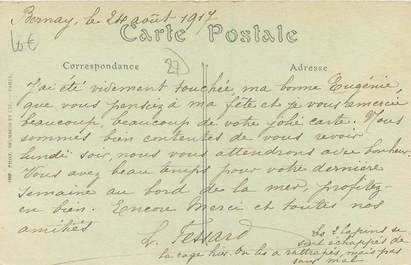 Bernay, le 24 août 1917
Carte Postale
Correspondance
Adresse
J'ai été videment touchée, ma bonne Eugénie,
que vous pensez à ma fête et je vous remercie
beaucoup, beaucoup de votre jolie carte. Nous
sommes bien contentes de vous revoir
lundi soir, nous vous attendrons avec bonheur.
Vous avez beau temps pour votre dernière
semaine au bord de la mer, profitez-
en bien! Encore Merci et toutes nos
amitiés
L.
les 2 lapins se
sont échappés de
la cage hier. On les a rattrapés, mais pas
sans mal